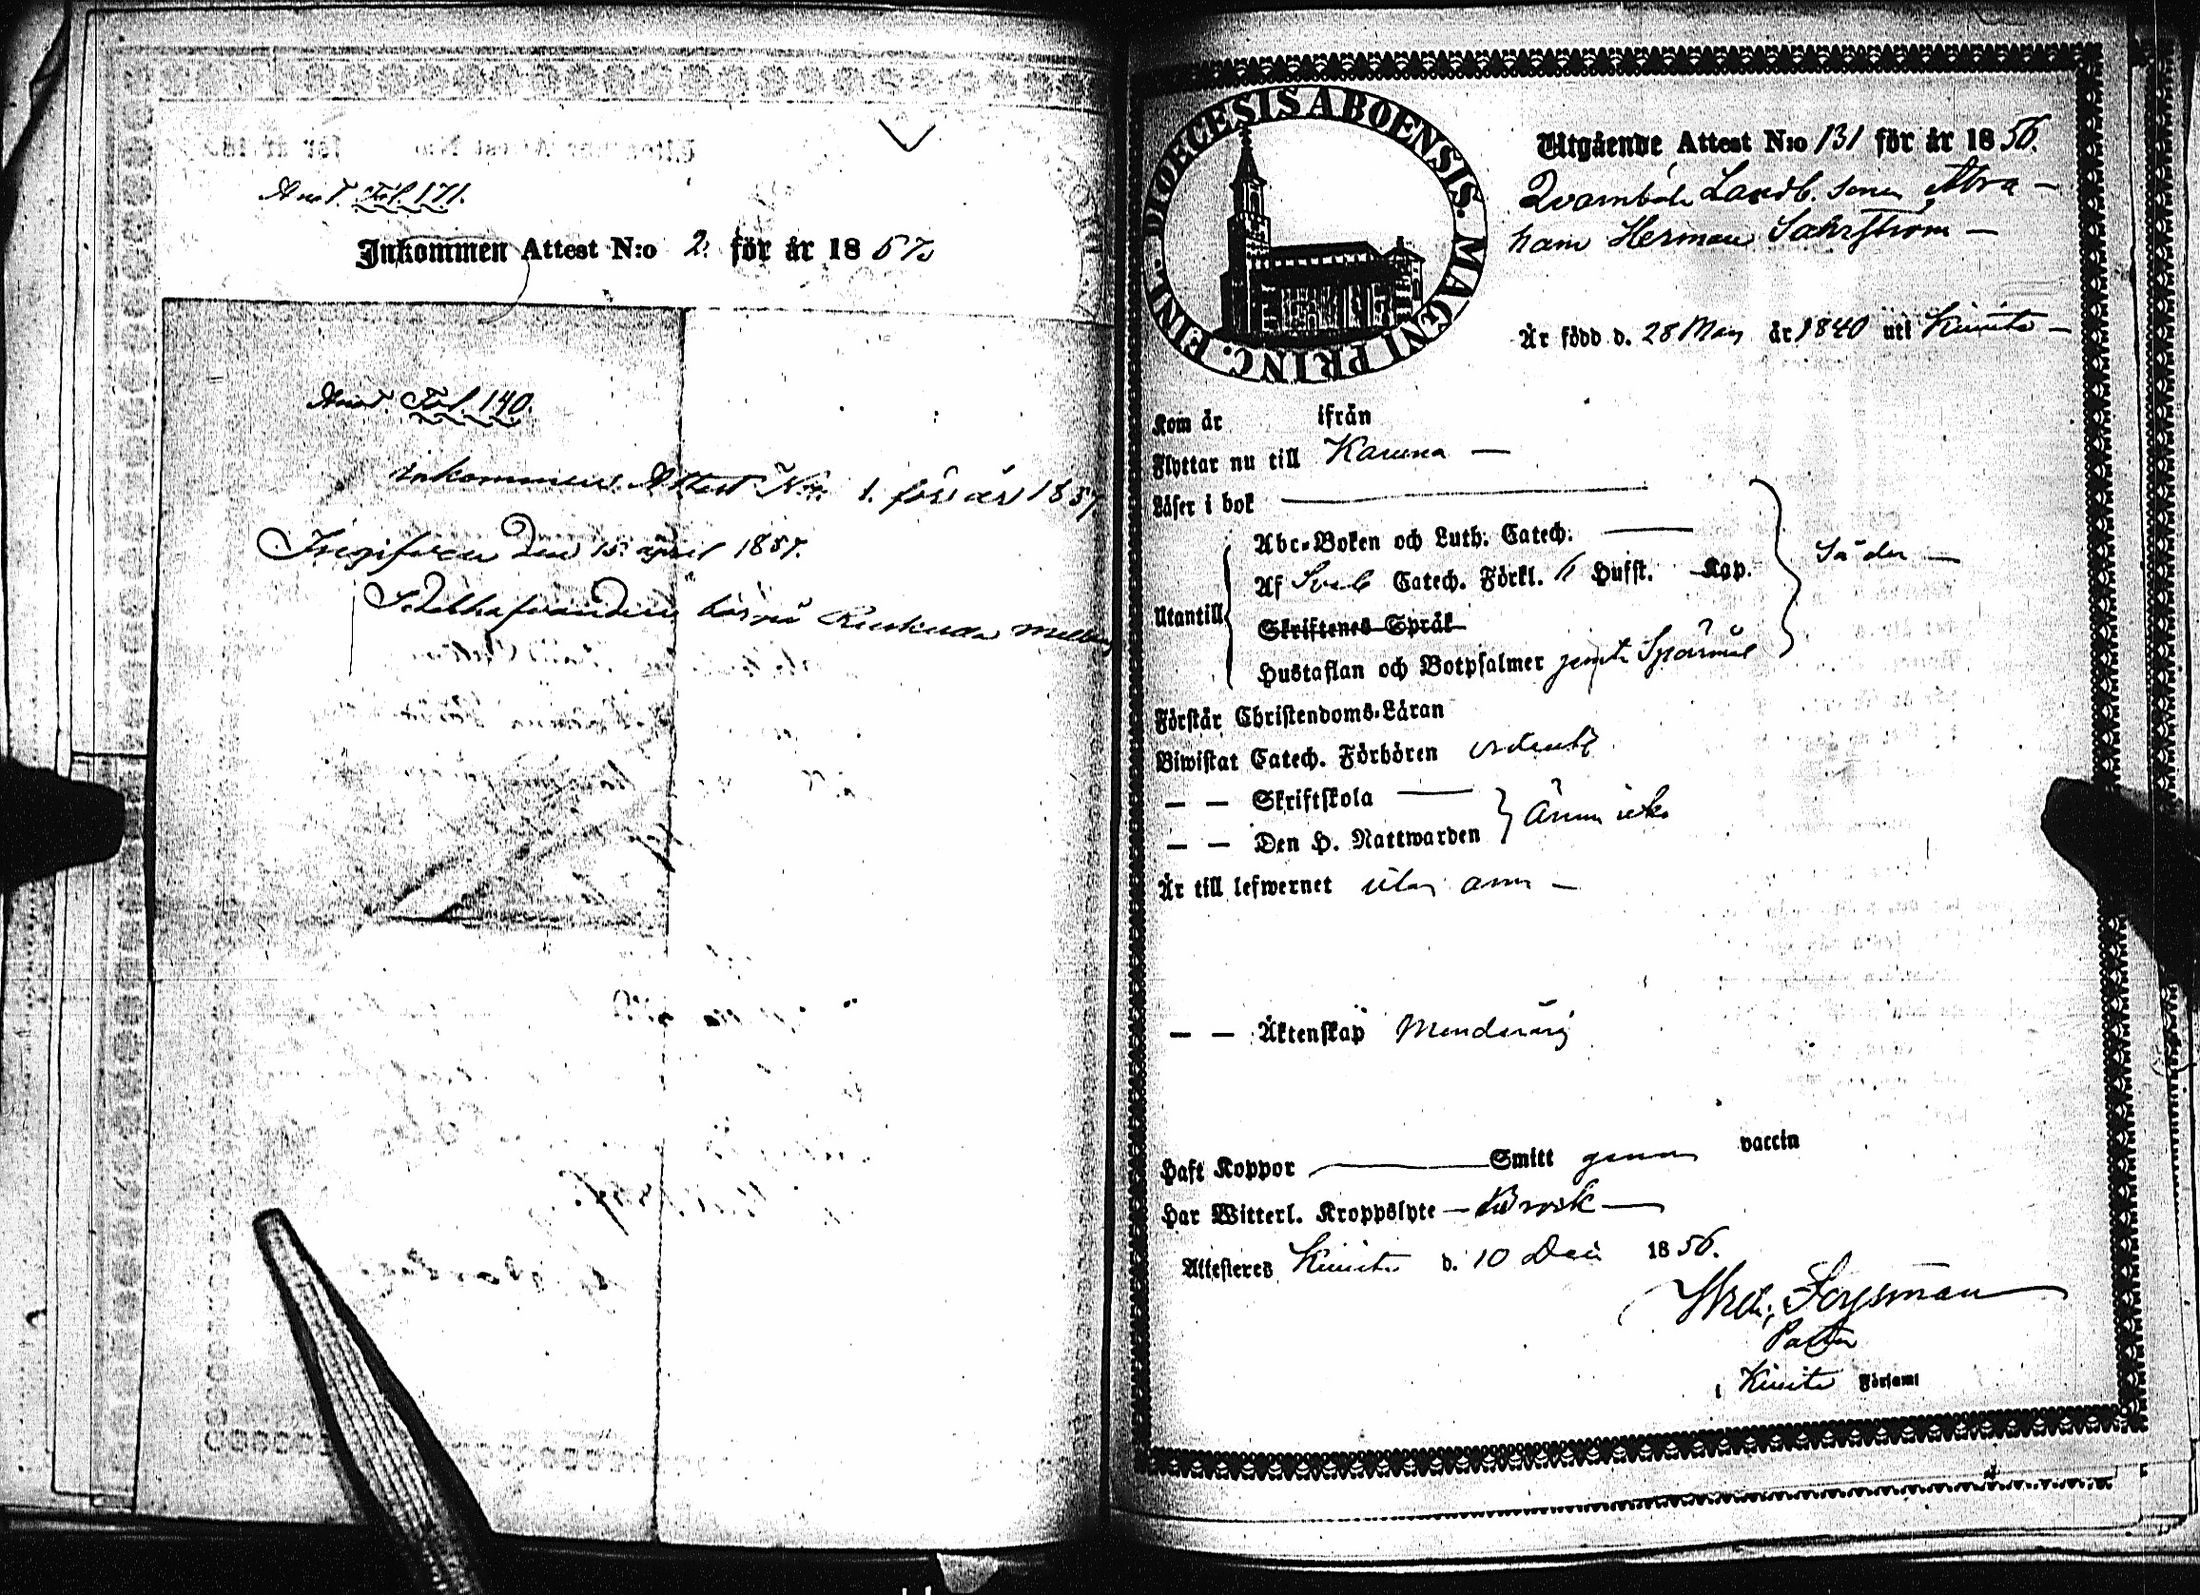 Anot. Fol. 171.
Inkommen Attest N:o 2. för år 1857.
Anot. Fol. 140.
Inkommen Attest N:o 1. för år 1857.
Ingifven den 15 april 1857.
Innehafvanden bor på
DIOECESIS ABOENSIS. MAGNI PRINC. FINL.
Utgående Attest N:o 131 för år 1856.
Qvarnbole Landb. sonen Abra-
ham Herman
Är född d. 28 Maj år 1840 uti Kimito
Kom år ifrån
Flyttar nu till Karuna
Läser i bok
Utantill
Abc-Boken och Luth. Catech.
Af Sveb Catech. Förkl. Huffst. Kap.
Skriftenes Språk
Hustaflan och Botpsalmer jemte Spörsmål
Förstår Christendoms-Läran
Biwistat Catech. Förhören ordentl
— — Skriftskola
— — Den H. Nattwarden
Ännu icke
Är till lefwernet utan anm
— — Äktenskap Minderårig
Haft Koppor Smitt genom vaccin
Har Witterl. Kroppslyte Bråck
Attesteres Kimito d. 10 Dec 1856.
Pastor
i Kimito Församl